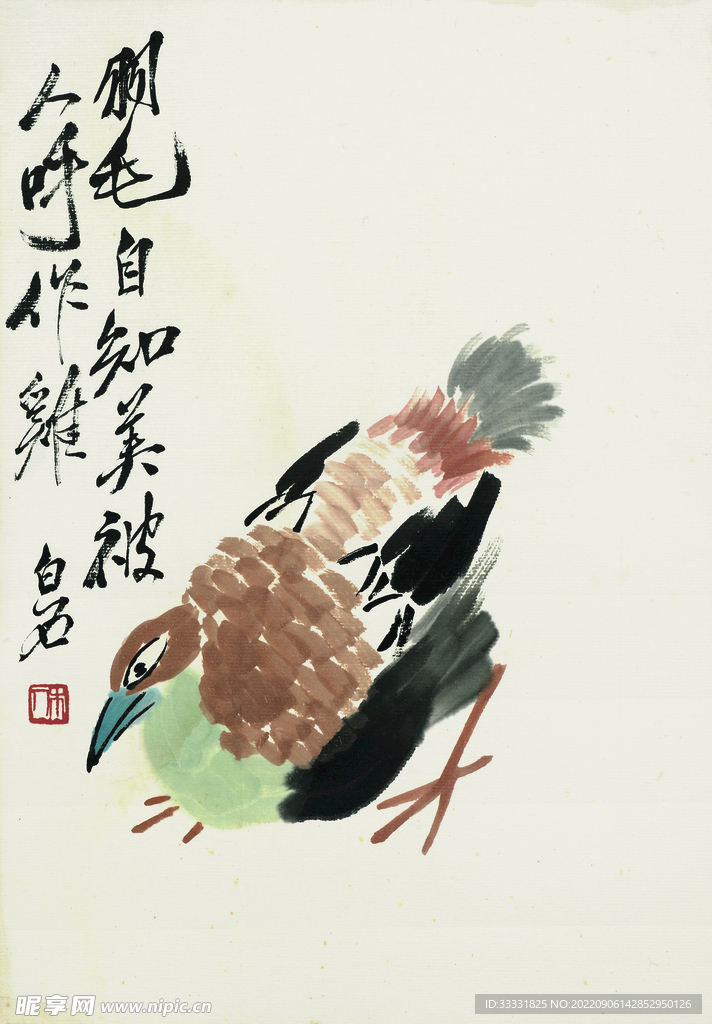 羽毛自知美被
人呼作雞
白石
木人
昵享网 www.nipic.cn
ID:33331825 NO:20220906142852950126